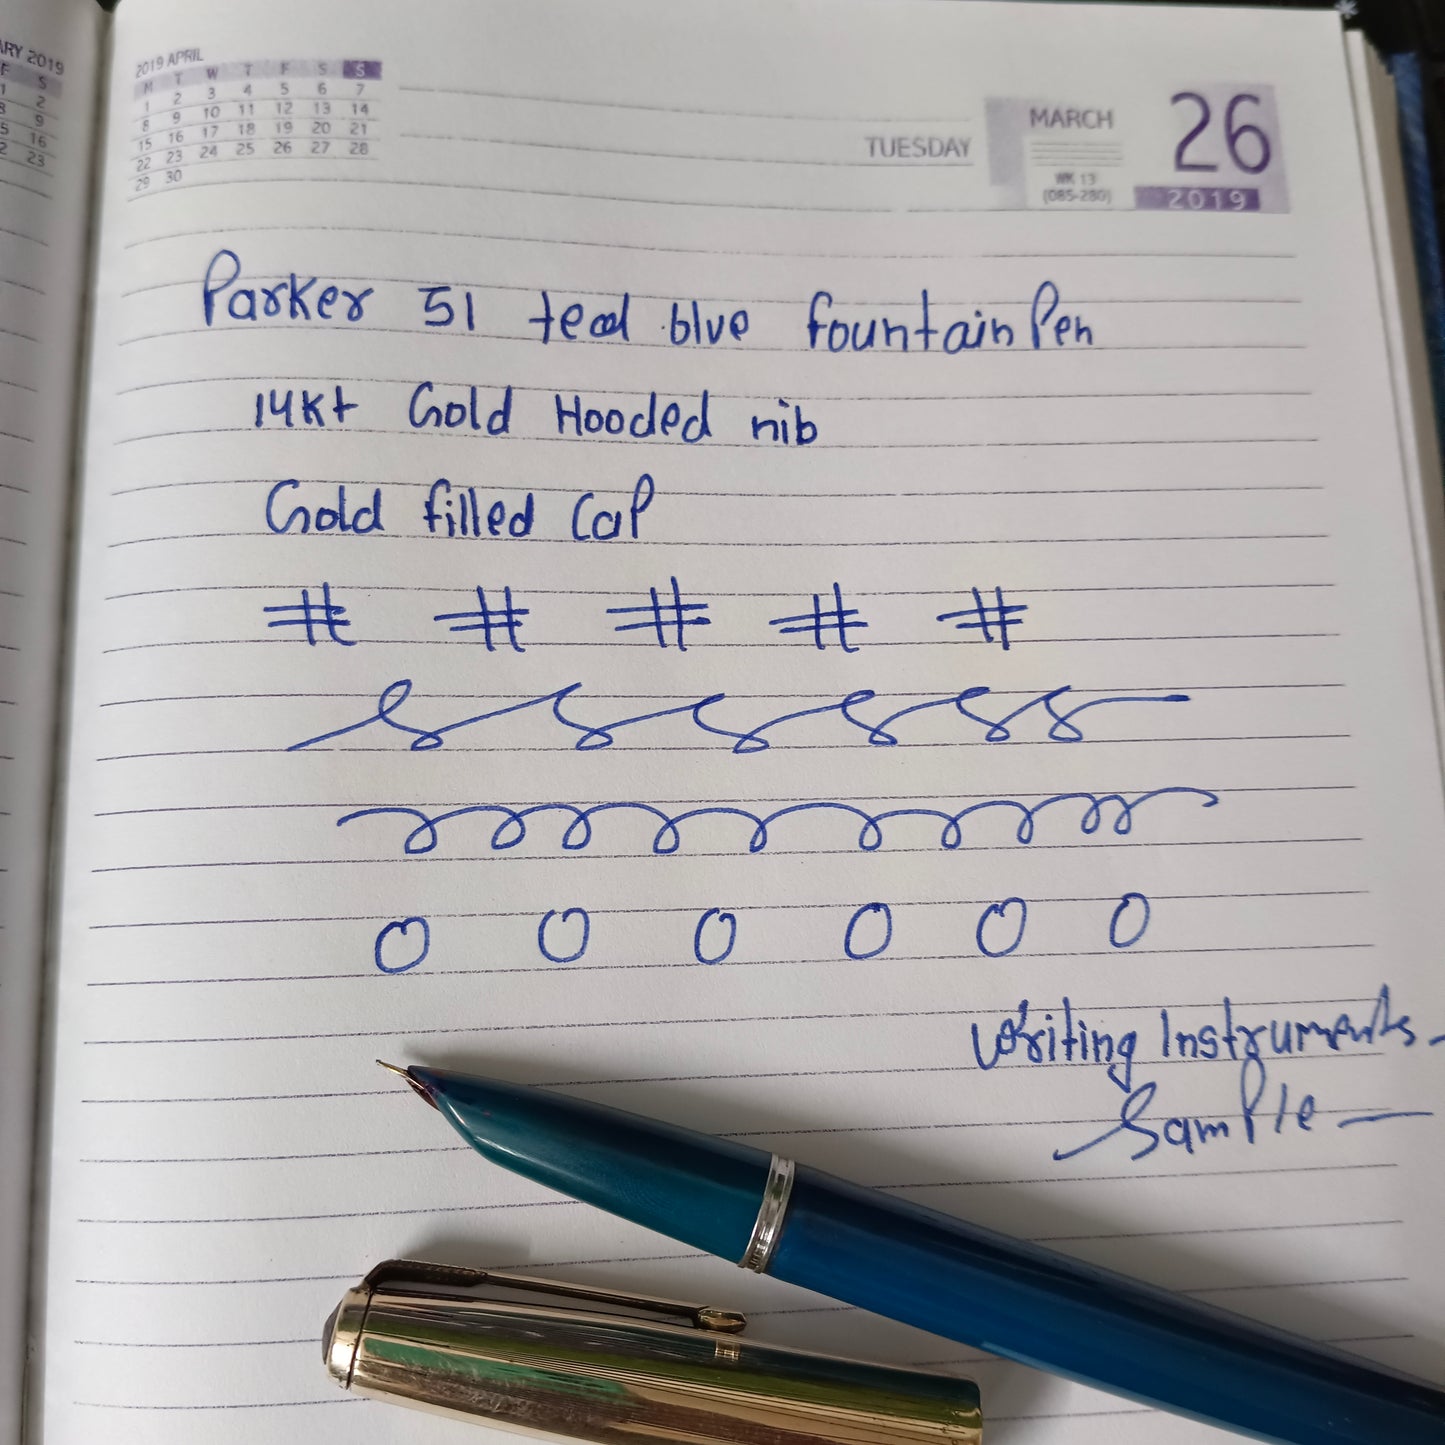 ARY 2019
F S
1 2
8 9
5 16
2 23
2019 APRIL
M T W T F S S
1 2 3 4 5 6 7
8 9 10 11 12 13 14
15 16 17 18 19 20 21
22 23 24 25 26 27 28
29 30
TUESDAY
MARCH
WK 13
(085-280)
26
2019
Parker 51 teal blue fountain Pen
14Kt Gold Hooded nib
Gold filled Cap
# # # # #
O O O O O O
Writing Instruments
Sample